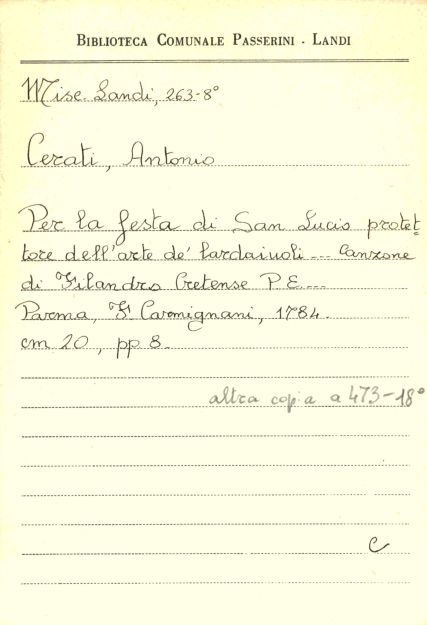 BIBLIOTECA COMUNALE PASSERINI - LANDI
Misc. Landi, 263-8°
Cerati, Antonio
Per la festa di San Lucio protet-
tore dell'arte de' lardaiuoli ... Canzone
di Filandro Cretense P.E....
Parma, F. Carmignani, 1784.
cm 20, pp 8.
altra copia a 473-18°
C